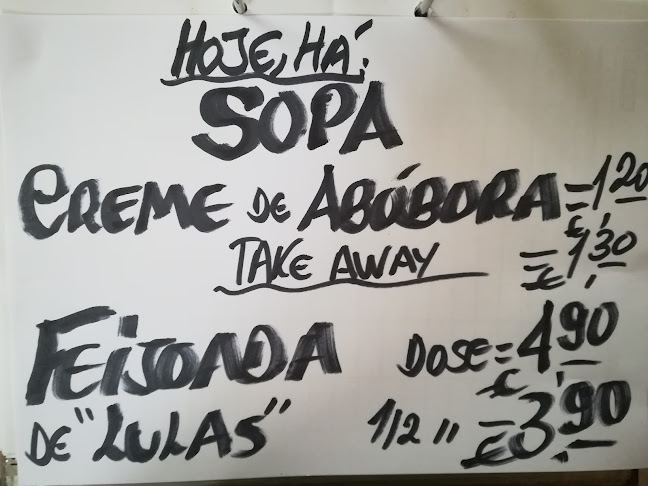 HOJE, HÁ:
SOPA
CREME DE ABÓBORA = € 1,20
TAKE AWAY = € 1,30
FEIJOADA DOSE = € 4,90
DE "LULAS" 1/2 " = € 3,90